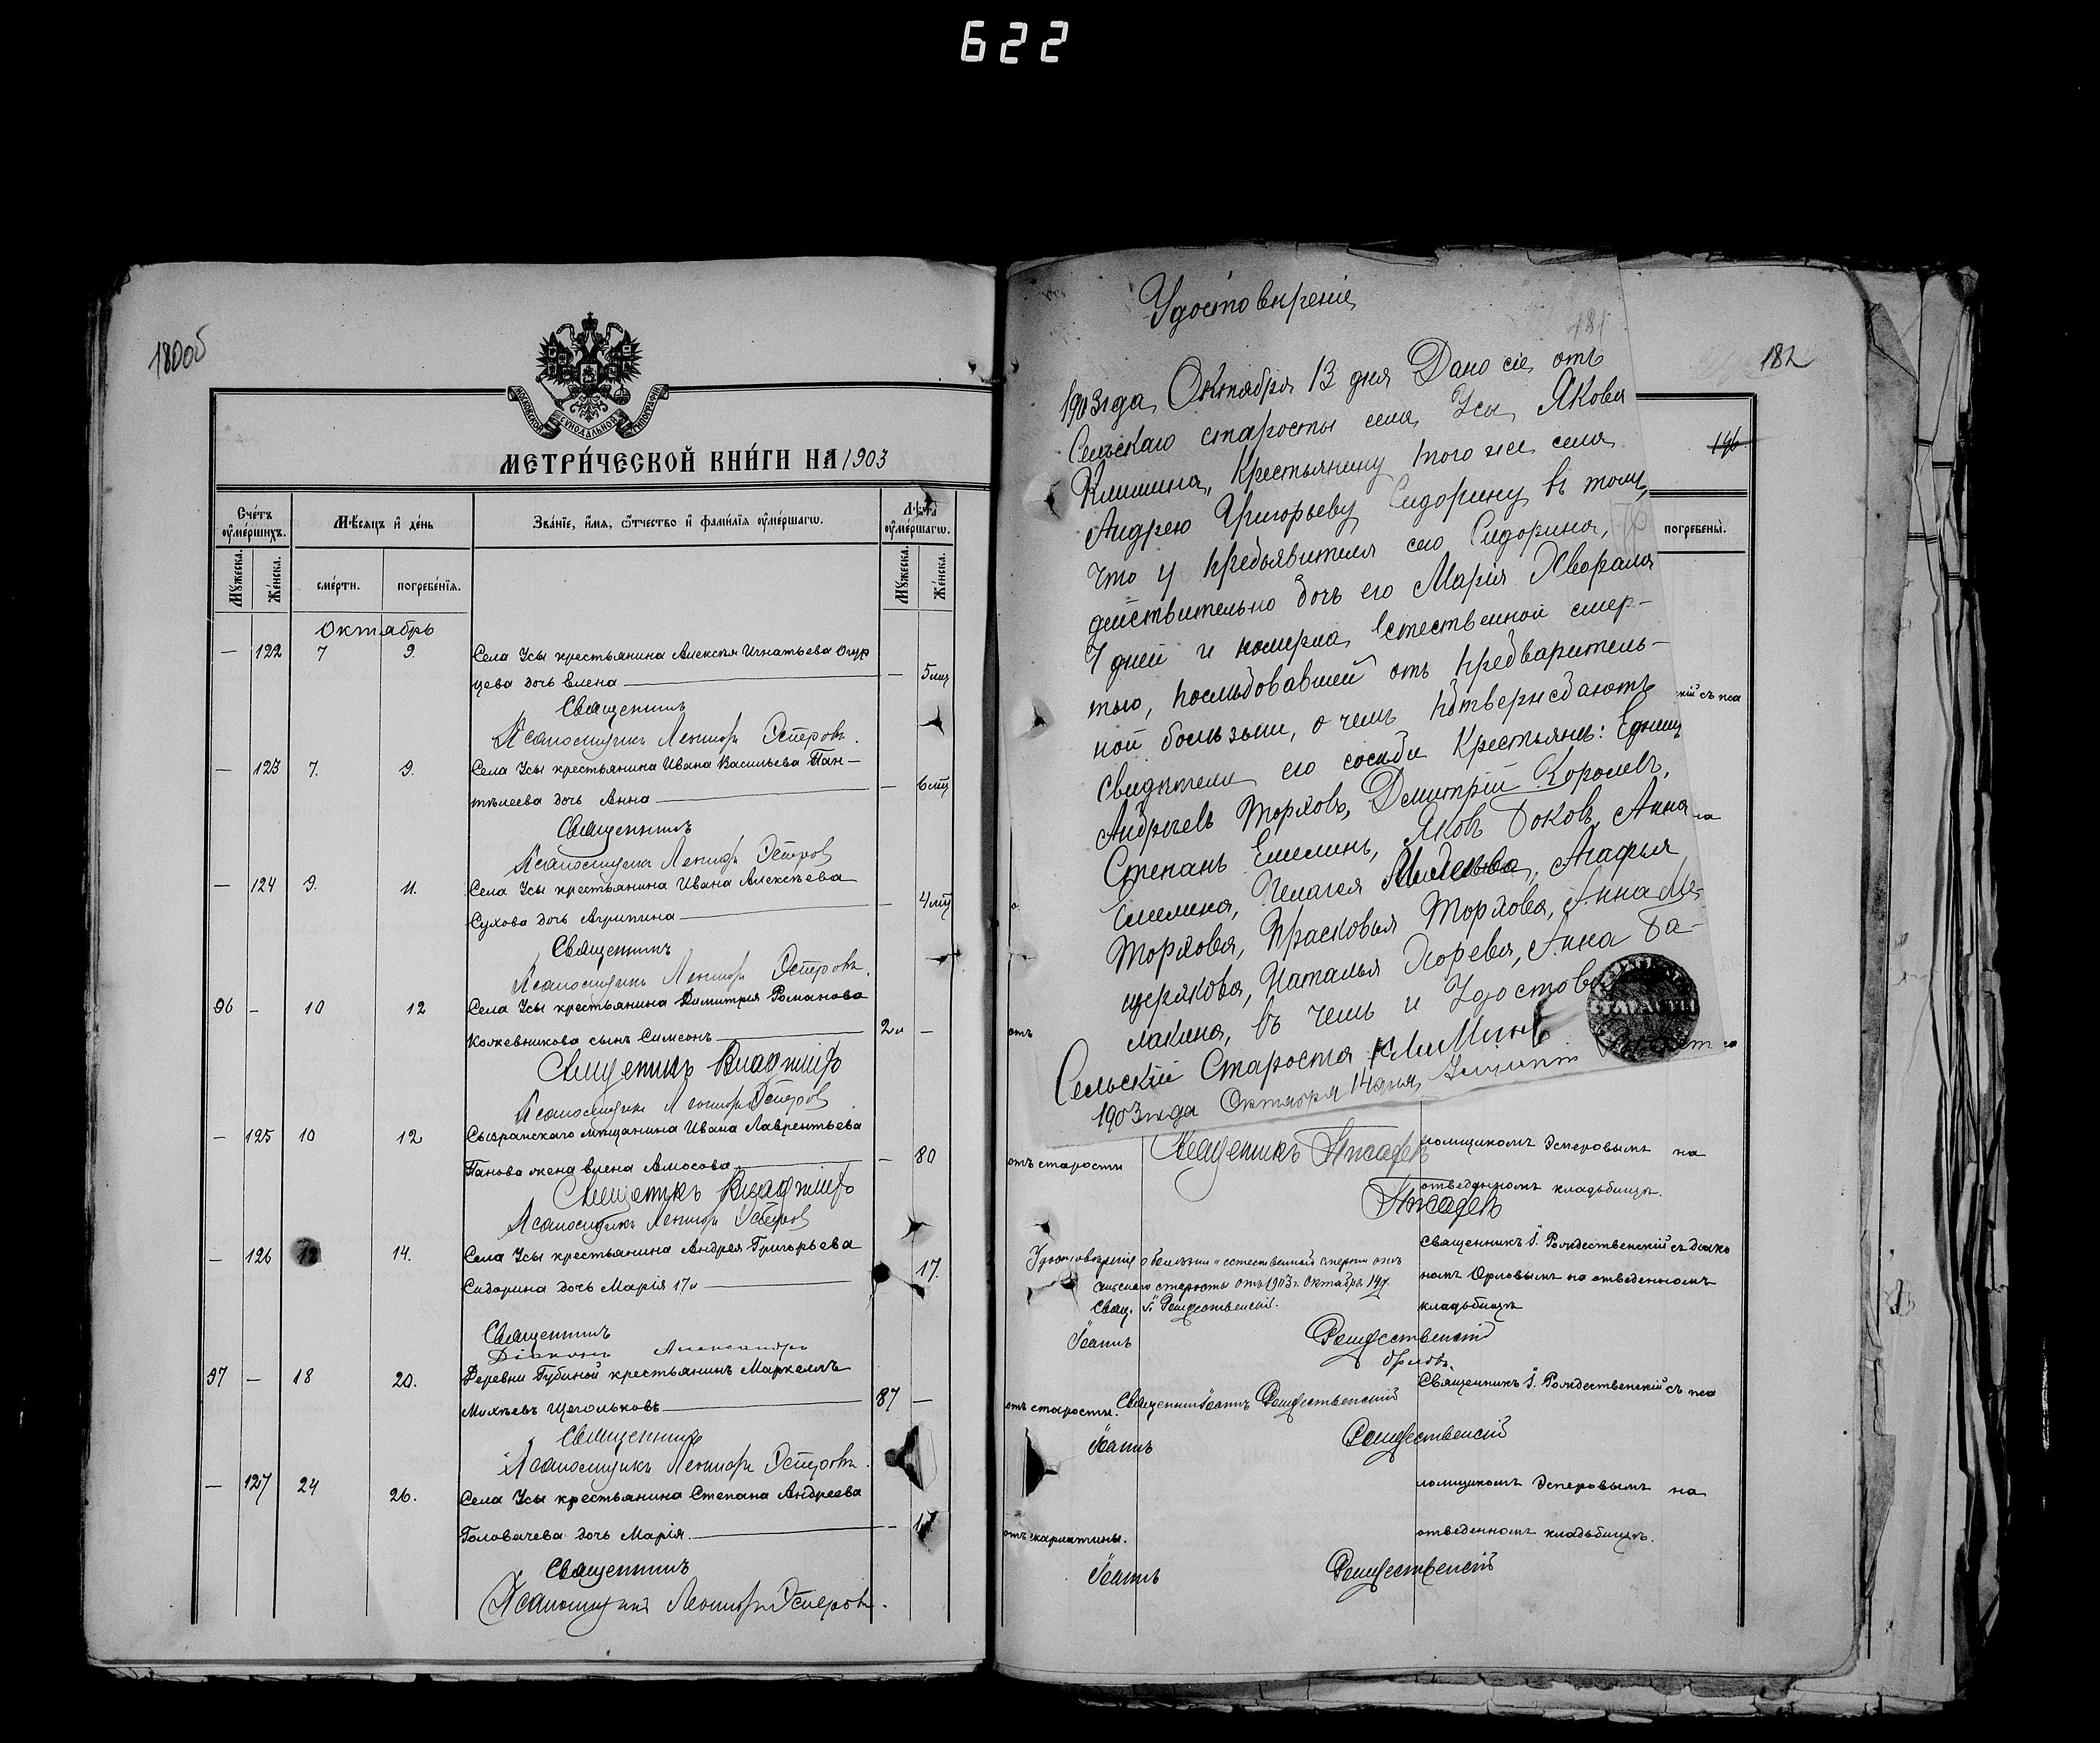 622
180об
МОСКОВСКОЙ СѴНОДАЛЬНОЙ ТИПОГРАФІИ
МЕТРИ́ЧЕСКОЙ КНИ́ГИ НА 1903
Сче́тъ оумершихъ.
Мѣсяцъ и де́нь
Зва́ніе, и́мя, о́тчество и фами́лія оуме́ршагѡ.
Лѣта оуме́ршагѡ.
Мꙋжеска.
Же́нска.
сме́рти.
погребе́нїѧ.
Мꙋжеска.
Же́нска.
Октябрь
— 122 7 9. Села Усы крестьянина Алексѣя Игнатьева Огур
цева дочь Елена — 5 мц
Священникъ
Псаломщикъ Леонидъ Эсперовъ.
— 123 7. 9. Села Усы крестьянина Ивана Васильева Пан—
телеева дочь Анна — 6 мц
Священникъ
Псаломщикъ Леонидъ Эсперовъ
— 124 9. 11. Села Усы крестьянина Ивана Алексѣева
Сухова дочь Агрипина — 4 мц
Священникъ
Псаломщикъ Леонидъ Эсперовъ.
96 — 10 12 Села Усы крестьянина Димитрія Романова
Кожевникова сынъ Симеонъ 2 л —
Священникъ
Псаломщикъ Леонидъ Эсперовъ
— 125 10 12 Сызранскаго мѣщанина Ивана Лаврентьева
Панова жена Елена Амосова — 80
Священникъ
Псаломщикъ Леонидъ Эсперовъ
— 126 12 14. Села Усы крестьянина Андрея Григорьева
Сидорина дочь Марія 17 д 17.
Священникъ
Діаконъ Александръ
97 — 18 20. Деревни Губиной крестьянинъ Маркеллъ
Михѣевъ Щегольковъ 87 —
Священникъ
Псаломщикъ Леонидъ Эсперовъ.
— 127 24 26. Села Усы крестьянина Степана Андреева
Головачева дочь Марія — 1 г.
Священникъ
Псаломщикъ Леонидъ Эсперовъ.
Удостовѣреніе
181
182
196
1903 года Октября 13 дня Дано сіе отъ
Сельскаго старосты села Усы, Якова
Климина, Крестьянину того же села
Андрею Григорьеву Сидорину въ томъ,
что у предъявителя сего Сидорина,
действительно дочь его Марія
7 дней и померла естественной смер-
тью, последовавшей отъ предваритель-
ной болезьни, о чемъ подтверждаютъ
свидѣтели его соседи Крестьяне:
Андрѣевъ Торховъ, Дмитрій Королевъ,
Степанъ Емелинъ, Яковъ Боковъ, Анна
Емелина, Пелагея Агафья
Торхова, Прасковья Торхова, Анна Ме-
щерякова, Наталья Анна Ба-
лакина, въ чемъ и
Сельскій Староста Климинъ
1903 года Октября 14 дня
погребены̀.
кій съ пса
на
отъ
отъ старости Священникъ
ломщикомъ Эсперовымъ на
отведенномъ кладбищѣ.
Удостовѣреніе о болѣзни и естественной смерти отъ
сельскаго старосты отъ 1903 г. Октября 14 д.
Свящ. І. Рождественскій.
Священникъ І. Рождественскій съ діако
номъ Орловымъ на отведенномъ
кладбищѣ
Іоаннъ Рождественскій
Орловъ.
отъ старости. Священникъ Іоаннъ Рождественскій
Священникъ І. Рождественскій съ пса
Іоаннъ Рождественскій
ломщикомъ Эсперовымъ на
отъ скарлатины. отведенномъ кладбищѣ.
Іоаннъ Рождественскій